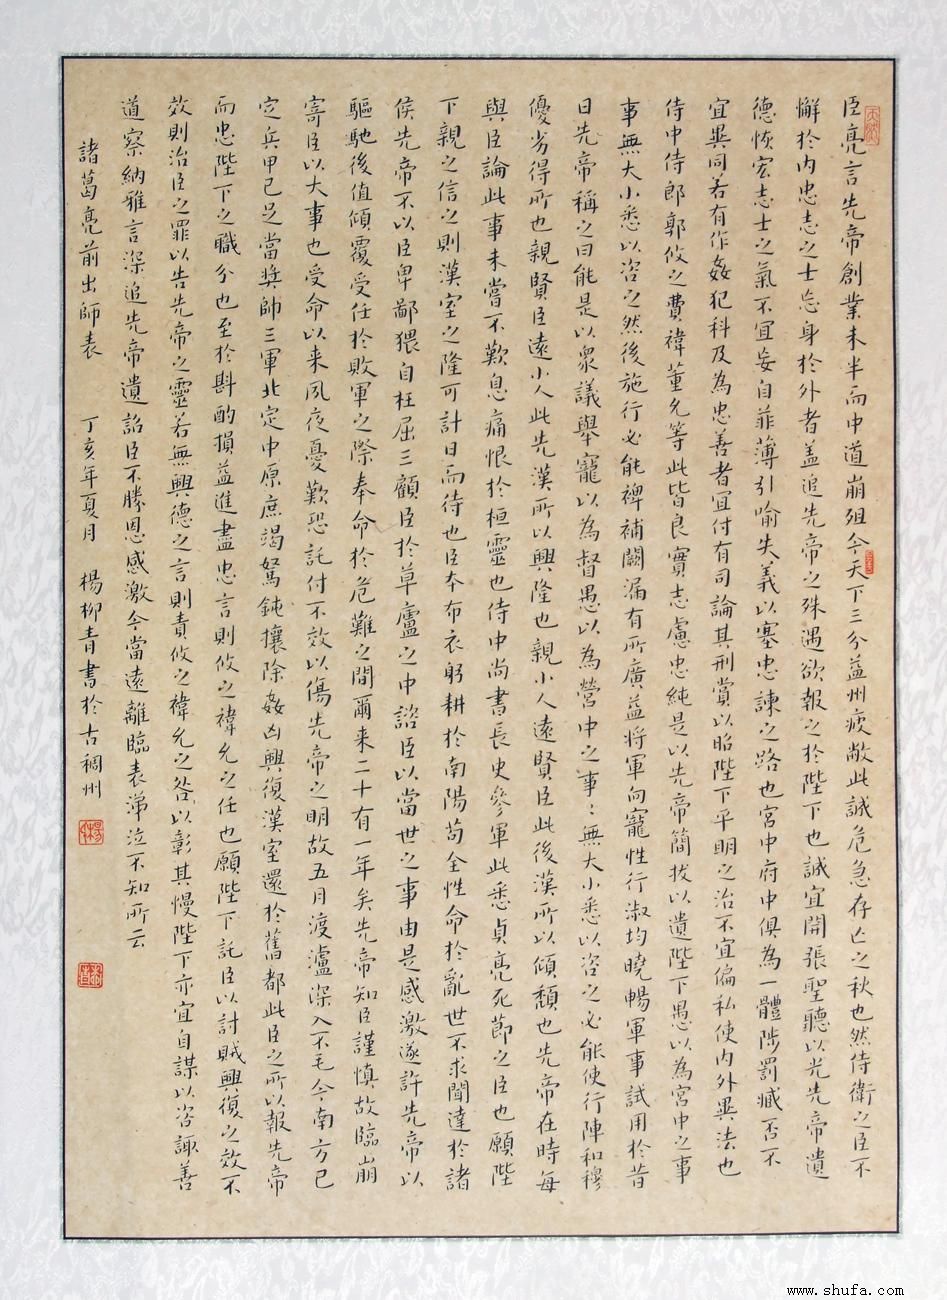 臣亮言先帝創業未半而中道崩殂今天下三分益州疲敝此誠危急存亡之秋也然侍衛之臣不
懈於內忠志之士忘身於外者盖追先帝之殊遇欲報之於陛下也誠宜開張聖聽以光先帝遺
德恢宏志士之氣不宜妄自菲薄引喻失義以塞忠諫之路也宮中府中俱為一體陟罰臧否不
宜異同若有作姦犯科及為忠善者宜付有司論其刑賞以昭陛下平明之治不宜偏私使內外異法也
侍中侍郎郭攸之費禕董允等此皆良實志慮忠純是以先帝簡拔以遺陛下愚以為宮中之事
事無大小悉以咨之然後施行必能裨補闕漏有所廣益將軍向寵性行淑均曉暢軍事試用於昔
日先帝稱之曰能是以眾議舉寵以為督愚以為營中之事〻無大小悉以咨之必能使行陣和穆
優劣得所也親賢臣遠小人此先漢所以興隆也親小人遠賢臣此後漢所以傾頹也先帝在時每
與臣論此事未嘗不歎息痛恨於桓靈也侍中尚書長史參軍此悉貞亮死節之臣也願陛
下親之信之則漢室之隆可計日而待也臣本布衣躬耕於南陽苟全性命於亂世不求聞達於諸
侯先帝不以臣卑鄙猥自枉屈三顧臣於草廬之中諮臣以當世之事由是感激遂許先帝以
驅馳後值傾覆受任於敗軍之際奉命於危難之間爾来二十有一年矣先帝知臣謹慎故臨崩
寄臣以大事也受命以来夙夜憂歎恐託付不效以傷先帝之明故五月渡瀘深入不毛今南方已
定兵甲已足當奬帥三軍北定中原庶竭駑鈍攘除姦凶興復漢室還於舊都此臣之所以報先帝
而忠陛下之職分也至於斟酌損益進盡忠言則攸之禕允之任也願陛下託臣以討賊興復之效不
效則治臣之罪以告先帝之靈若無興德之言則責攸之禕允之咎以彰其慢陛下亦宜自謀以咨諏善
道察納雅言深追先帝遺詔臣不勝恩感激今當遠離臨表涕泣不知所云
諸葛亮前出師表 丁亥年夏月 楊柳青書於古稠州
www.shufa.com